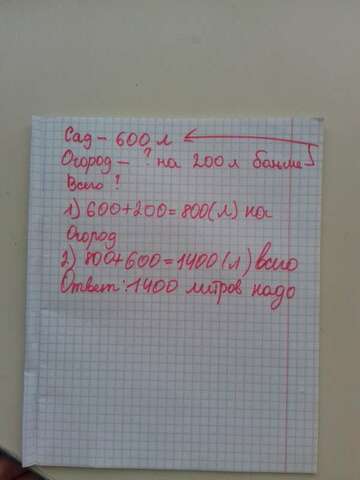 Сад - 600 л
Огород - ? на 200 л больше
Всего ?
1) 600+200=800(л) на
Огород
2) 800+600=1400(л) всего
Ответ: 1400 литров надо